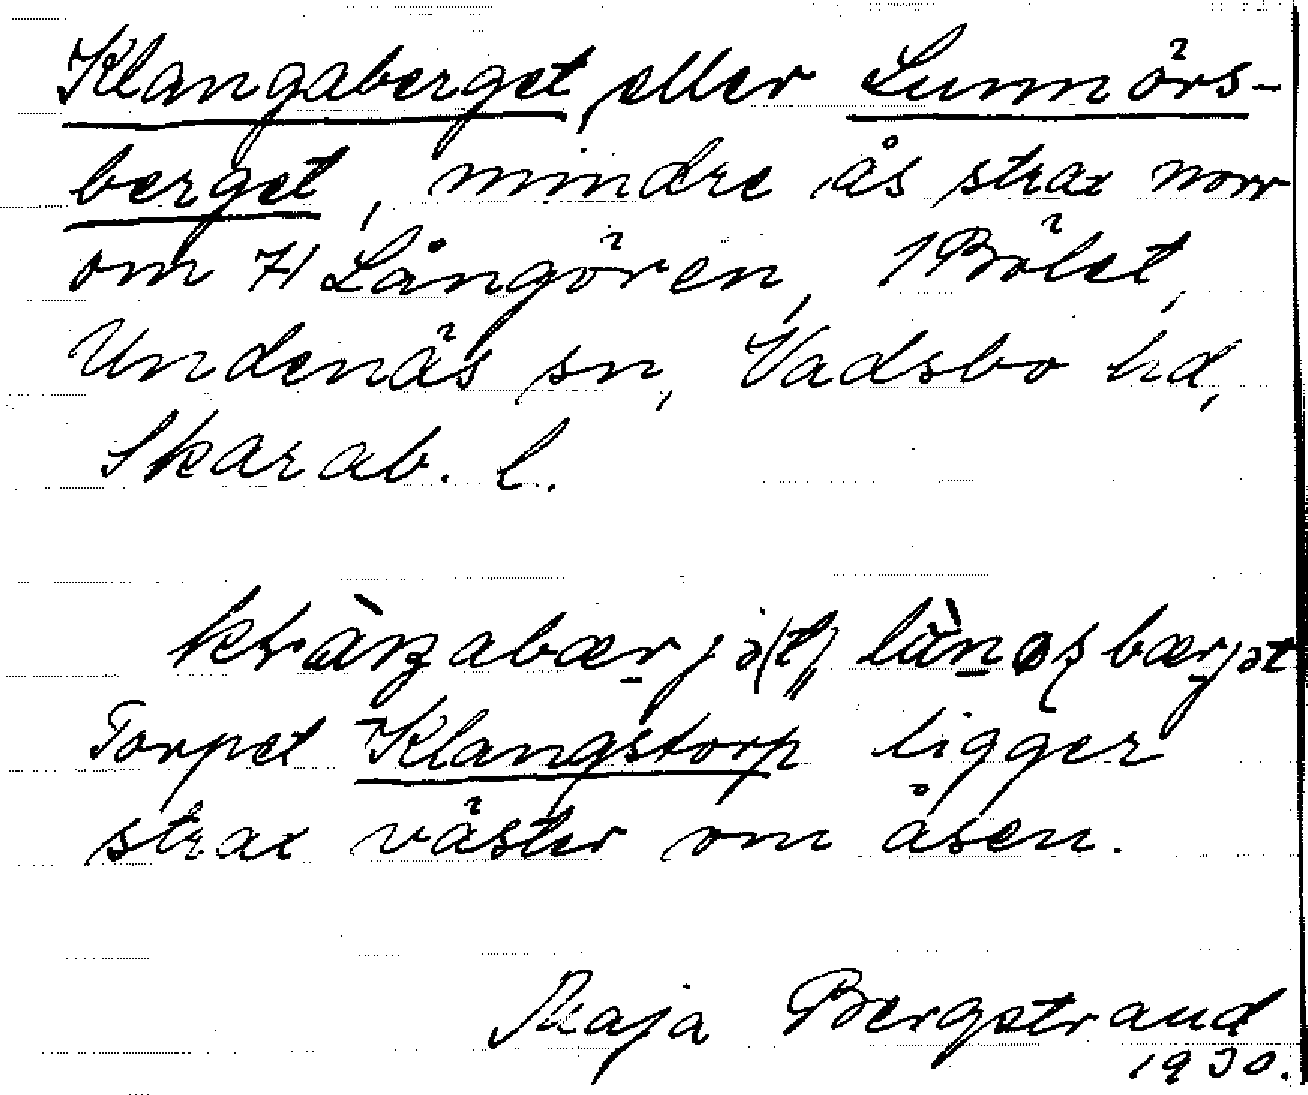 Klangaberget eller Lunnörs-
berget, mindre ås strax norr
om H Långören, 1 Bölet,
Undenäs sn, Vadsbo hd,
Skarab. l.
Torpet Klangstorp ligger
strax väster om åsen.
Maja Bergstrand
1930.